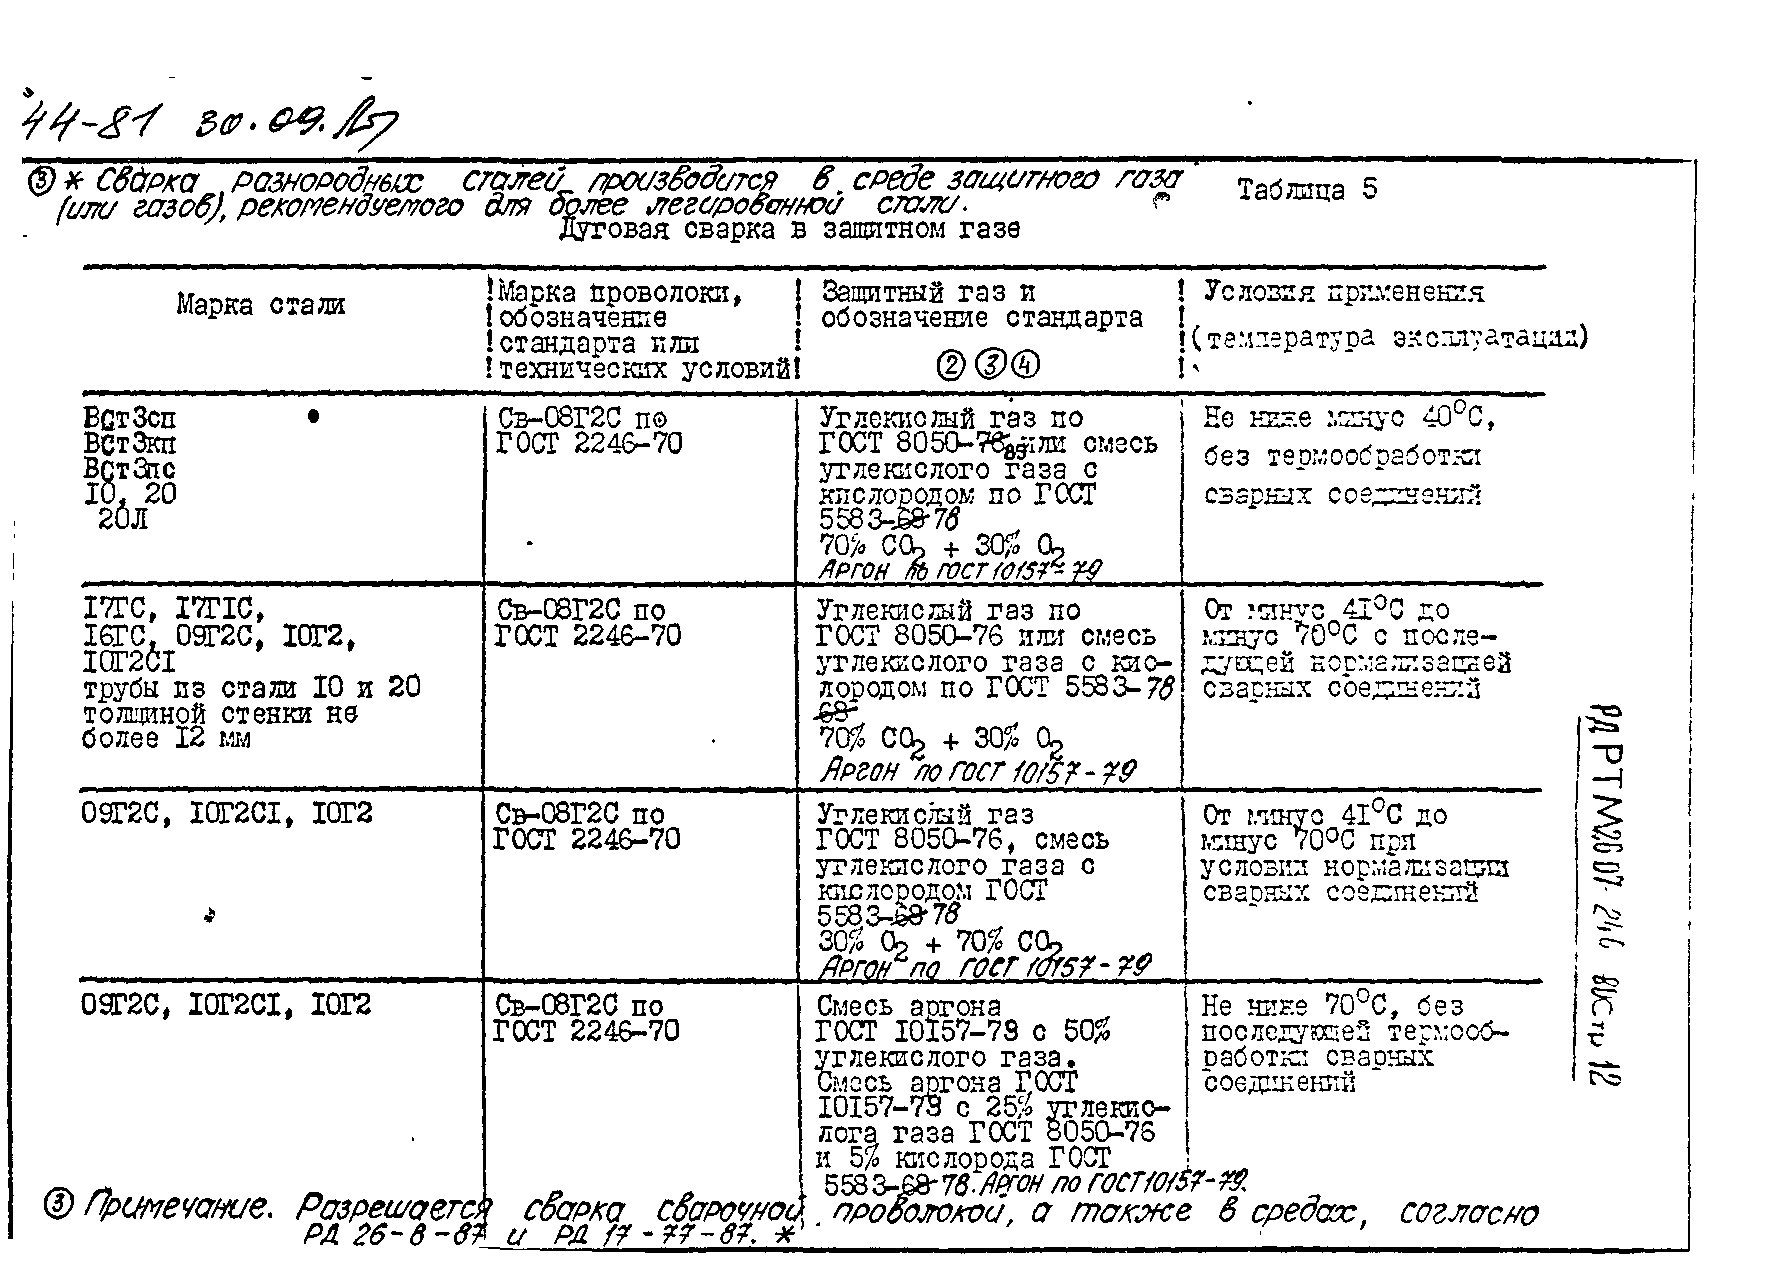 44-81 30.09.
③ * Сварка разнородных сталей производится в среде защитного газа
(или газов), рекомендуемого для более легированной стали.
Таблица 5
Дуговая сварка в защитном газе
Марка стали
Марка проволоки,
обозначение
стандарта или
технических условий
Защитный газ и
обозначение стандарта
② ③ ④
Условия применения
(температура эксплуатации)
ВСт3сп
ВСт3кп
ВСт3пс
10, 20
20Л
Св-08Г2С по
ГОСТ 2246-70
Углекислый газ по
ГОСТ 8050-76 85 или смесь
углекислого газа с
кислородом по ГОСТ
5583-68 78
70% CO2 + 30% O2
Аргон по ГОСТ 10157-79
Не ниже минус 40°С,
без термообработки
сварных соединений
17ГС, 17Г1С,
16ГС, 09Г2С, 10Г2,
10Г2С1
трубы из стали 10 и 20
толщиной стенки не
более 12 мм
Св-08Г2С по
ГОСТ 2246-70
Углекислый газ по
ГОСТ 8050-76 или смесь
углекислого газа с кис-
лородом по ГОСТ 5583-78
68
70% CO2 + 30% O2
Аргон по ГОСТ 10157-79
От минус 41°С до
минус 70°С с после-
дующей нормализацией
сварных соединений
09Г2С, 10Г2С1, 10Г2
Св-08Г2С по
ГОСТ 2246-70
Углекислый газ
ГОСТ 8050-76, смесь
углекислого газа с
кислородом ГОСТ
5583-68 78
30% O2 + 70% CO2
Аргон по ГОСТ 10157-79
От минус 41°С до
минус 70°С при
условии нормализации
сварных соединений
09Г2С, 10Г2С1, 10Г2
Св-08Г2С по
ГОСТ 2246-70
Смесь аргона
ГОСТ 10157-79 с 50%
углекислого газа.
Смесь аргона ГОСТ
10157-79 с 25% углекис-
лога газа ГОСТ 8050-76
и 5% кислорода ГОСТ
5583-68 78. Аргон по ГОСТ 10157-79.
Не ниже 70°С, без
последующей термооб-
работки сварных
соединений
③ Примечание. Разрешается сварка сварочной проволокой, а также в средах, согласно
РД 26-8-87 и РД 17-77-87. *
РД РТМ 26 07-246 80 Стр 12